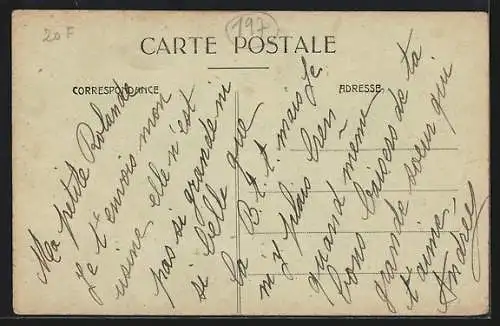 20F
197
CARTE POSTALE
CORRESPONDANCE
ADRESSE
Ma petite Rolande
Je t'envois mon
usine, elle n'est
pas si grande ni
si belle que
la B.t.t. mais je
m'y plais bien
quand meme
bons baisers de ta
grande soeur qui
t'aime,
Andrée